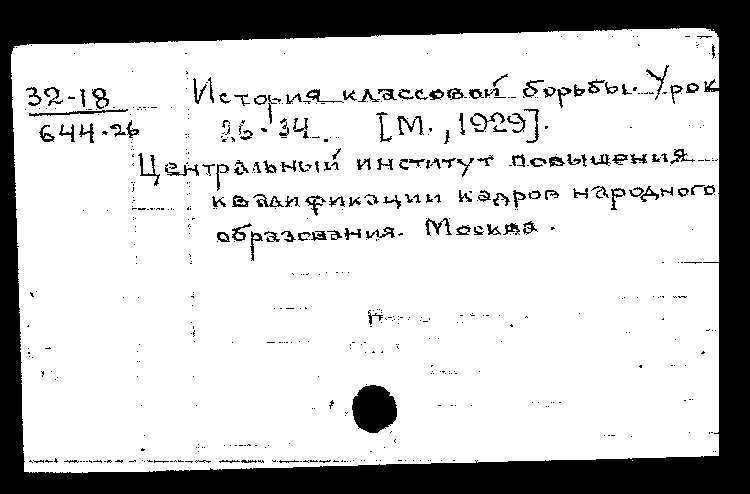 32-18
644-26
История классовой борьбы. Урок
26-34. [М., 1929].
Центральный институт повышения
квалификации кадров народного
образования. Москва.